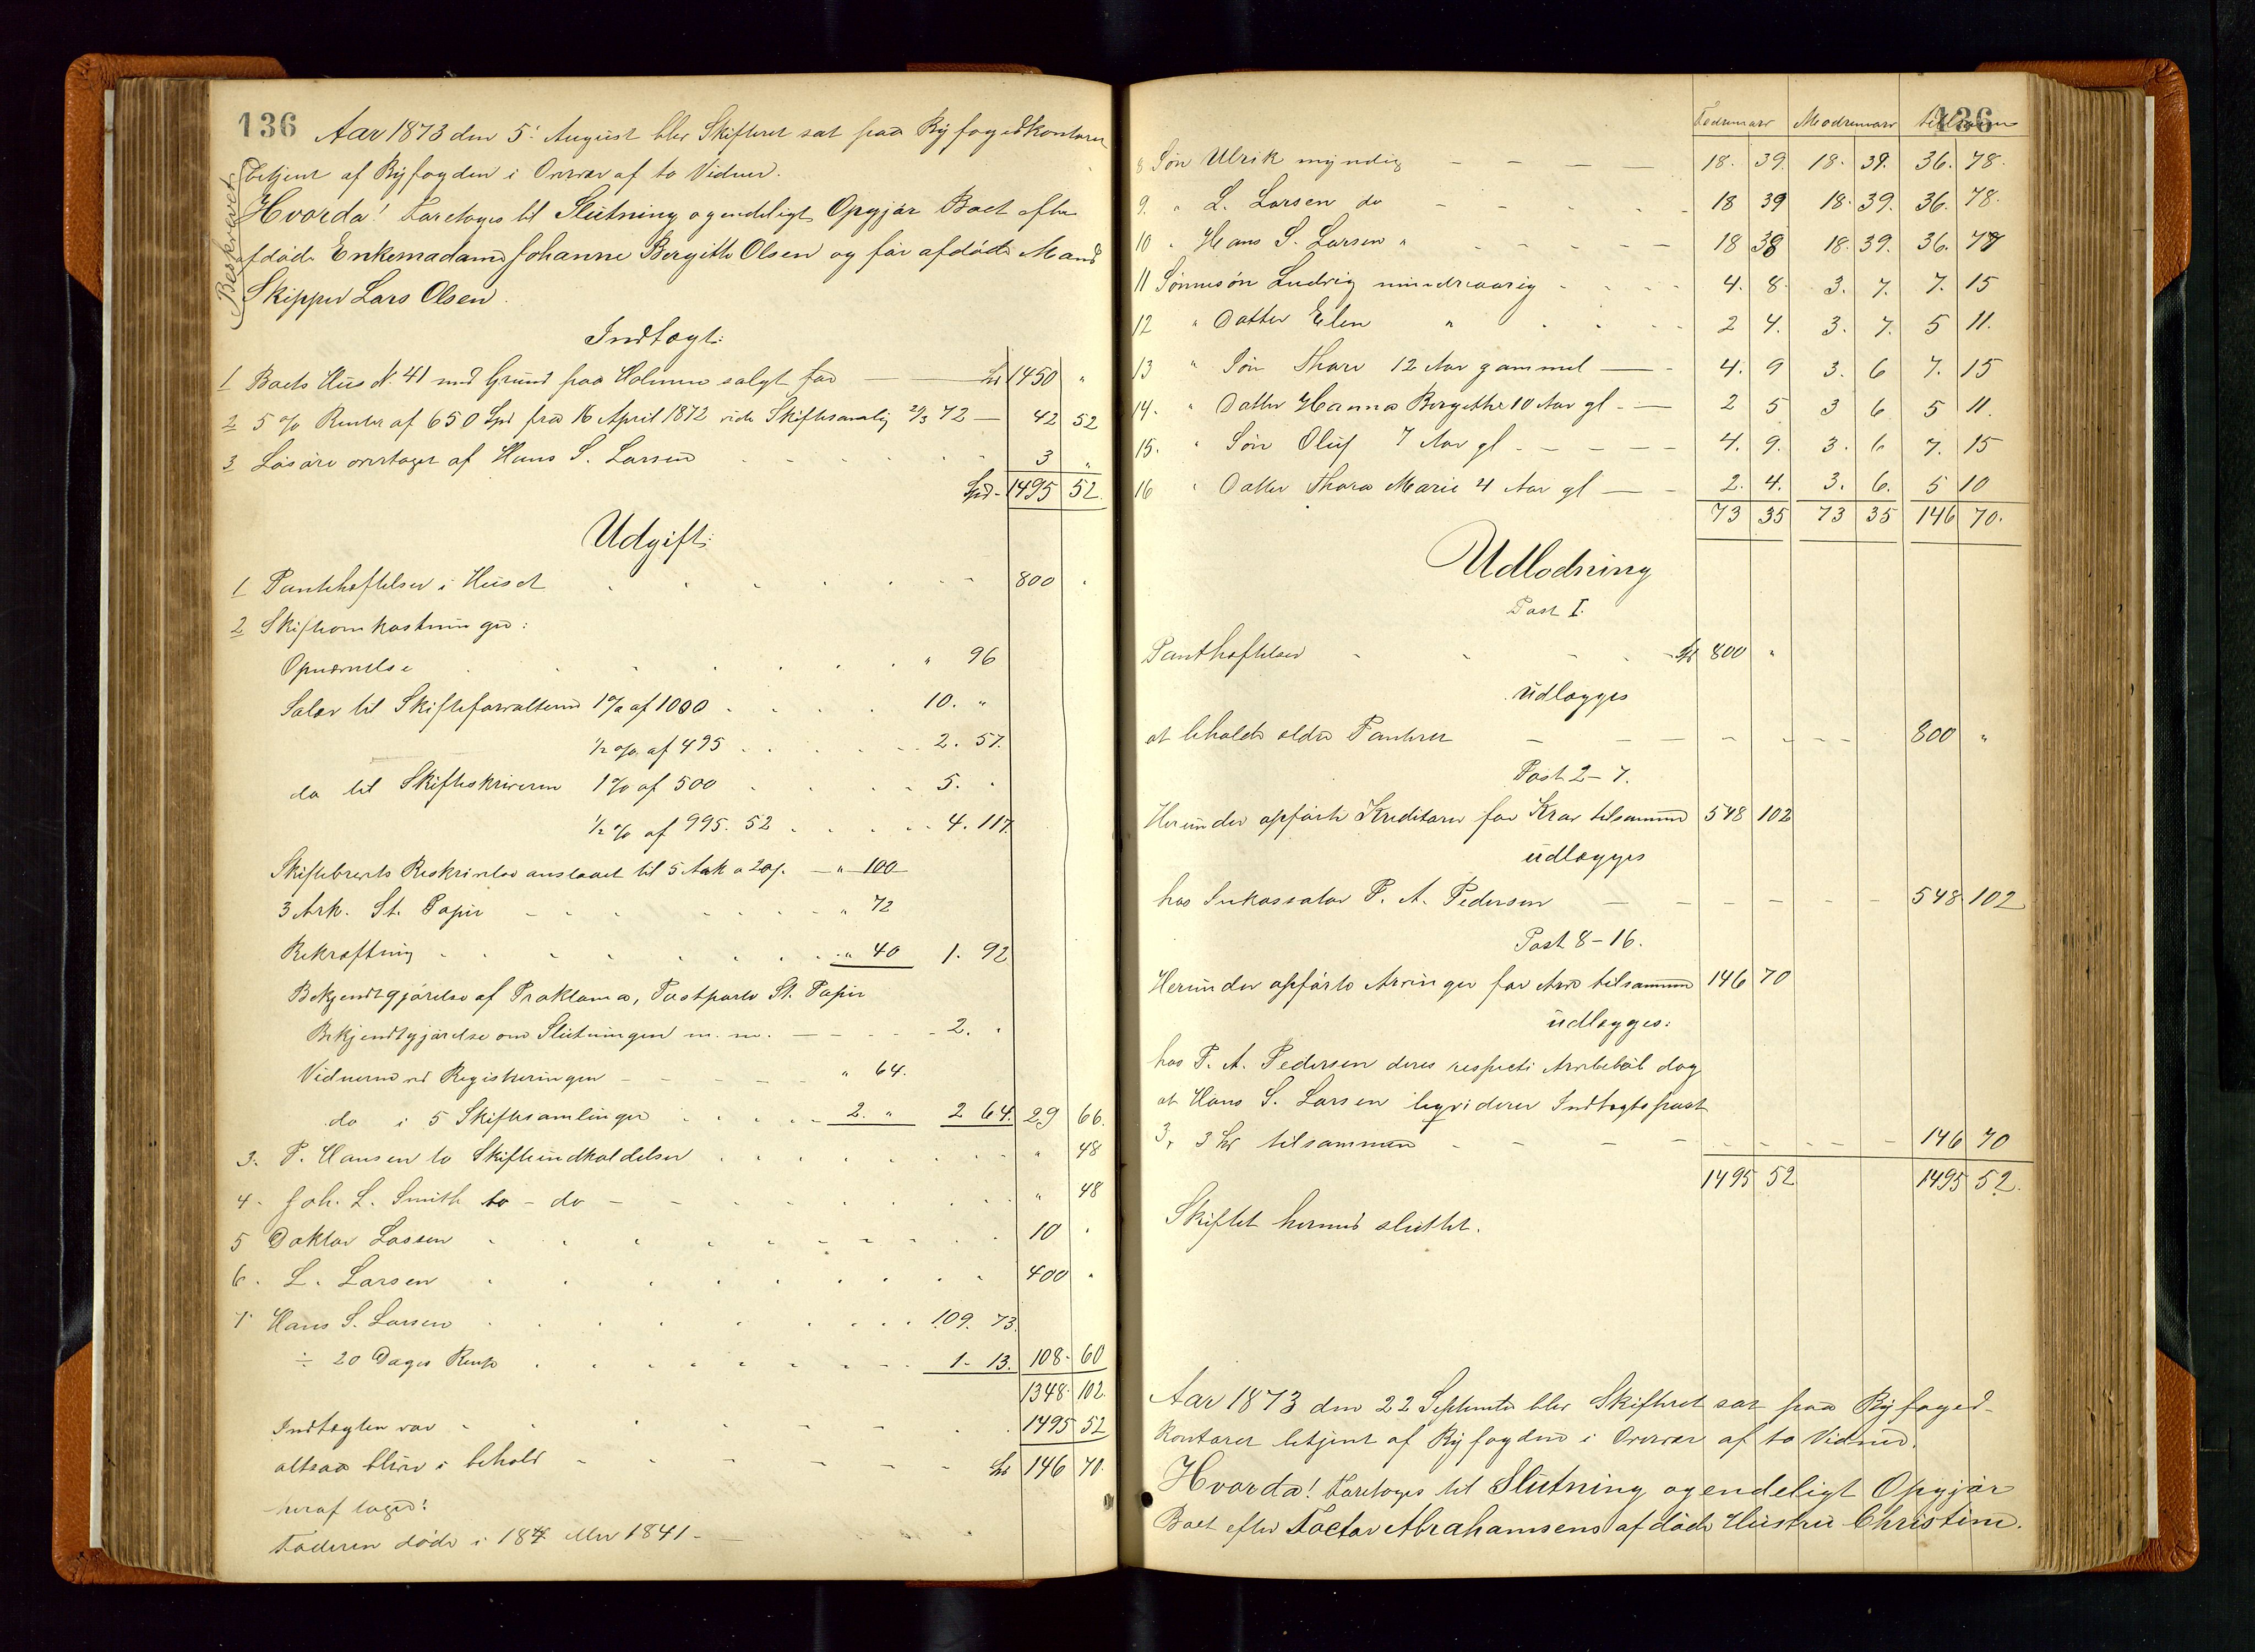 136
Aar 1873 den 5' August blev Skifteret sat paa Byfogedkontoret
betjent af Byfogden i Overvær af to Vidner.
Beskrevet
Hvorda! Foretoges til Slutning og endeligt Opgjör Boet efter
afdöde Enkemadame Johanne Bergitte Olsen og för afdöde Mand
Skipper Lars Olsen.
Indtægt:
1 Boets Hus N. 41 med Grund paa Holmen solgt for — Spd 1450 "
2 5 % Renter af 650 Spd fra 16 April 1872 vide Skiftesamling 21/3 72 — 42 52
3 Lösöre overtaget af Hans S. Larsen 3 "
Spd - 1495 52.
Udgift:
1 Pantheftelser i Huset 800 "
2 Skifteomkostninger:
Opnævnelse " 96
Salær til Skifteforvalteren 1 % af 1000 10. "
1/2 % af 495 2. 57.
do til Skifteskriveren 1 % af 500 5. "
1/2 % af 995. 52 4. 117.
Skiftebrevets Beskrivelse anslaaet til 5 Ark a 20 β. — " 100
3 Ark. St. Papir " 72
Bekræftning " 40 1. 92
Bekjendtgjörelse af Proklama, Postporto St. Papir
Bekjendtgjörelse om Slutningen m. m. — 2. "
Vidnerne ved Registreringen " 64.
do i 5 Skiftesamlinger 2. " 2 64. 29 66.
3. P. Hansen to Skifteindkaldelser " 48
4. Joh. L. Smith to - do - " 48
5 Doktor Lassen 10 "
6. L. Larsen 400 "
7 Hans S. Larsen 109. 73.
÷ 20 Dages Rente 1 - 13. 108. 60
1348. 102.
Indtægten var 1495 52
altsaa bliver i behold Spd 146 70.
heraf tager:
Faderen döde i 184 eller 1841 -
136
Fædrenearv Mödrenearv tilsammen
8 Sön Ulrik myndig — 18. 39. 18. 39. 36. 78.
9. " L. Larsen do 18 39 18. 39. 36. 78.
10 " Hans S. Larsen " 18 38 18. 39. 36. 77
11 Sönnesön Ludvig mindreaarig 4. 8. 3. 7. 7. 15
12 " Datter Elen " 2 4. 3. 7. 5 11.
13 " Sön Thore 12 Aar gammel — 4. 9 3. 6 7. 15
14. " Datter Hanna Bergethe 10 Aar gl - 2 5 3 6 5 11.
15. " Sön Oluf 7 Aar gl - 4. 9. 3. 6 7. 15
16 " Datter Thora Marie 4 Aar gl — 2. 4. 3. 6. 5 10
73 35 73 35 146 70.
Udlodning
Post I.
Pantheftelser Spd 800 "
udlægges
at beholde ældre Panteret 800 "
Post 2 - 7.
Herunder opförte Kreditorer for Krav tilsammen 548 102
udlægges
hos Inkassator P. A. Pedersen 548 102
Post 8 - 16.
Herunder opförte Arvinger for Arv tilsammen 146 70
udlægges:
hos P. A. Pedersen deres respecti Arvebelöb dog
at Hans S. Larsen liqviderer Indtægtspost
3, 3 Spd tilsammen 146 70
1495 52 1495 52.
Skiftet hermed sluttet.
Aar 1873 den 22 September blev Skifteret sat paa Byfoged-
kontoret betjent af Byfogden i Overvær af to Vidner.
Hvorda! Foretoges til Slutning og endeligt Opgjör
Boet efter Foctor Abrahamsens afdöde Hustru Christine.